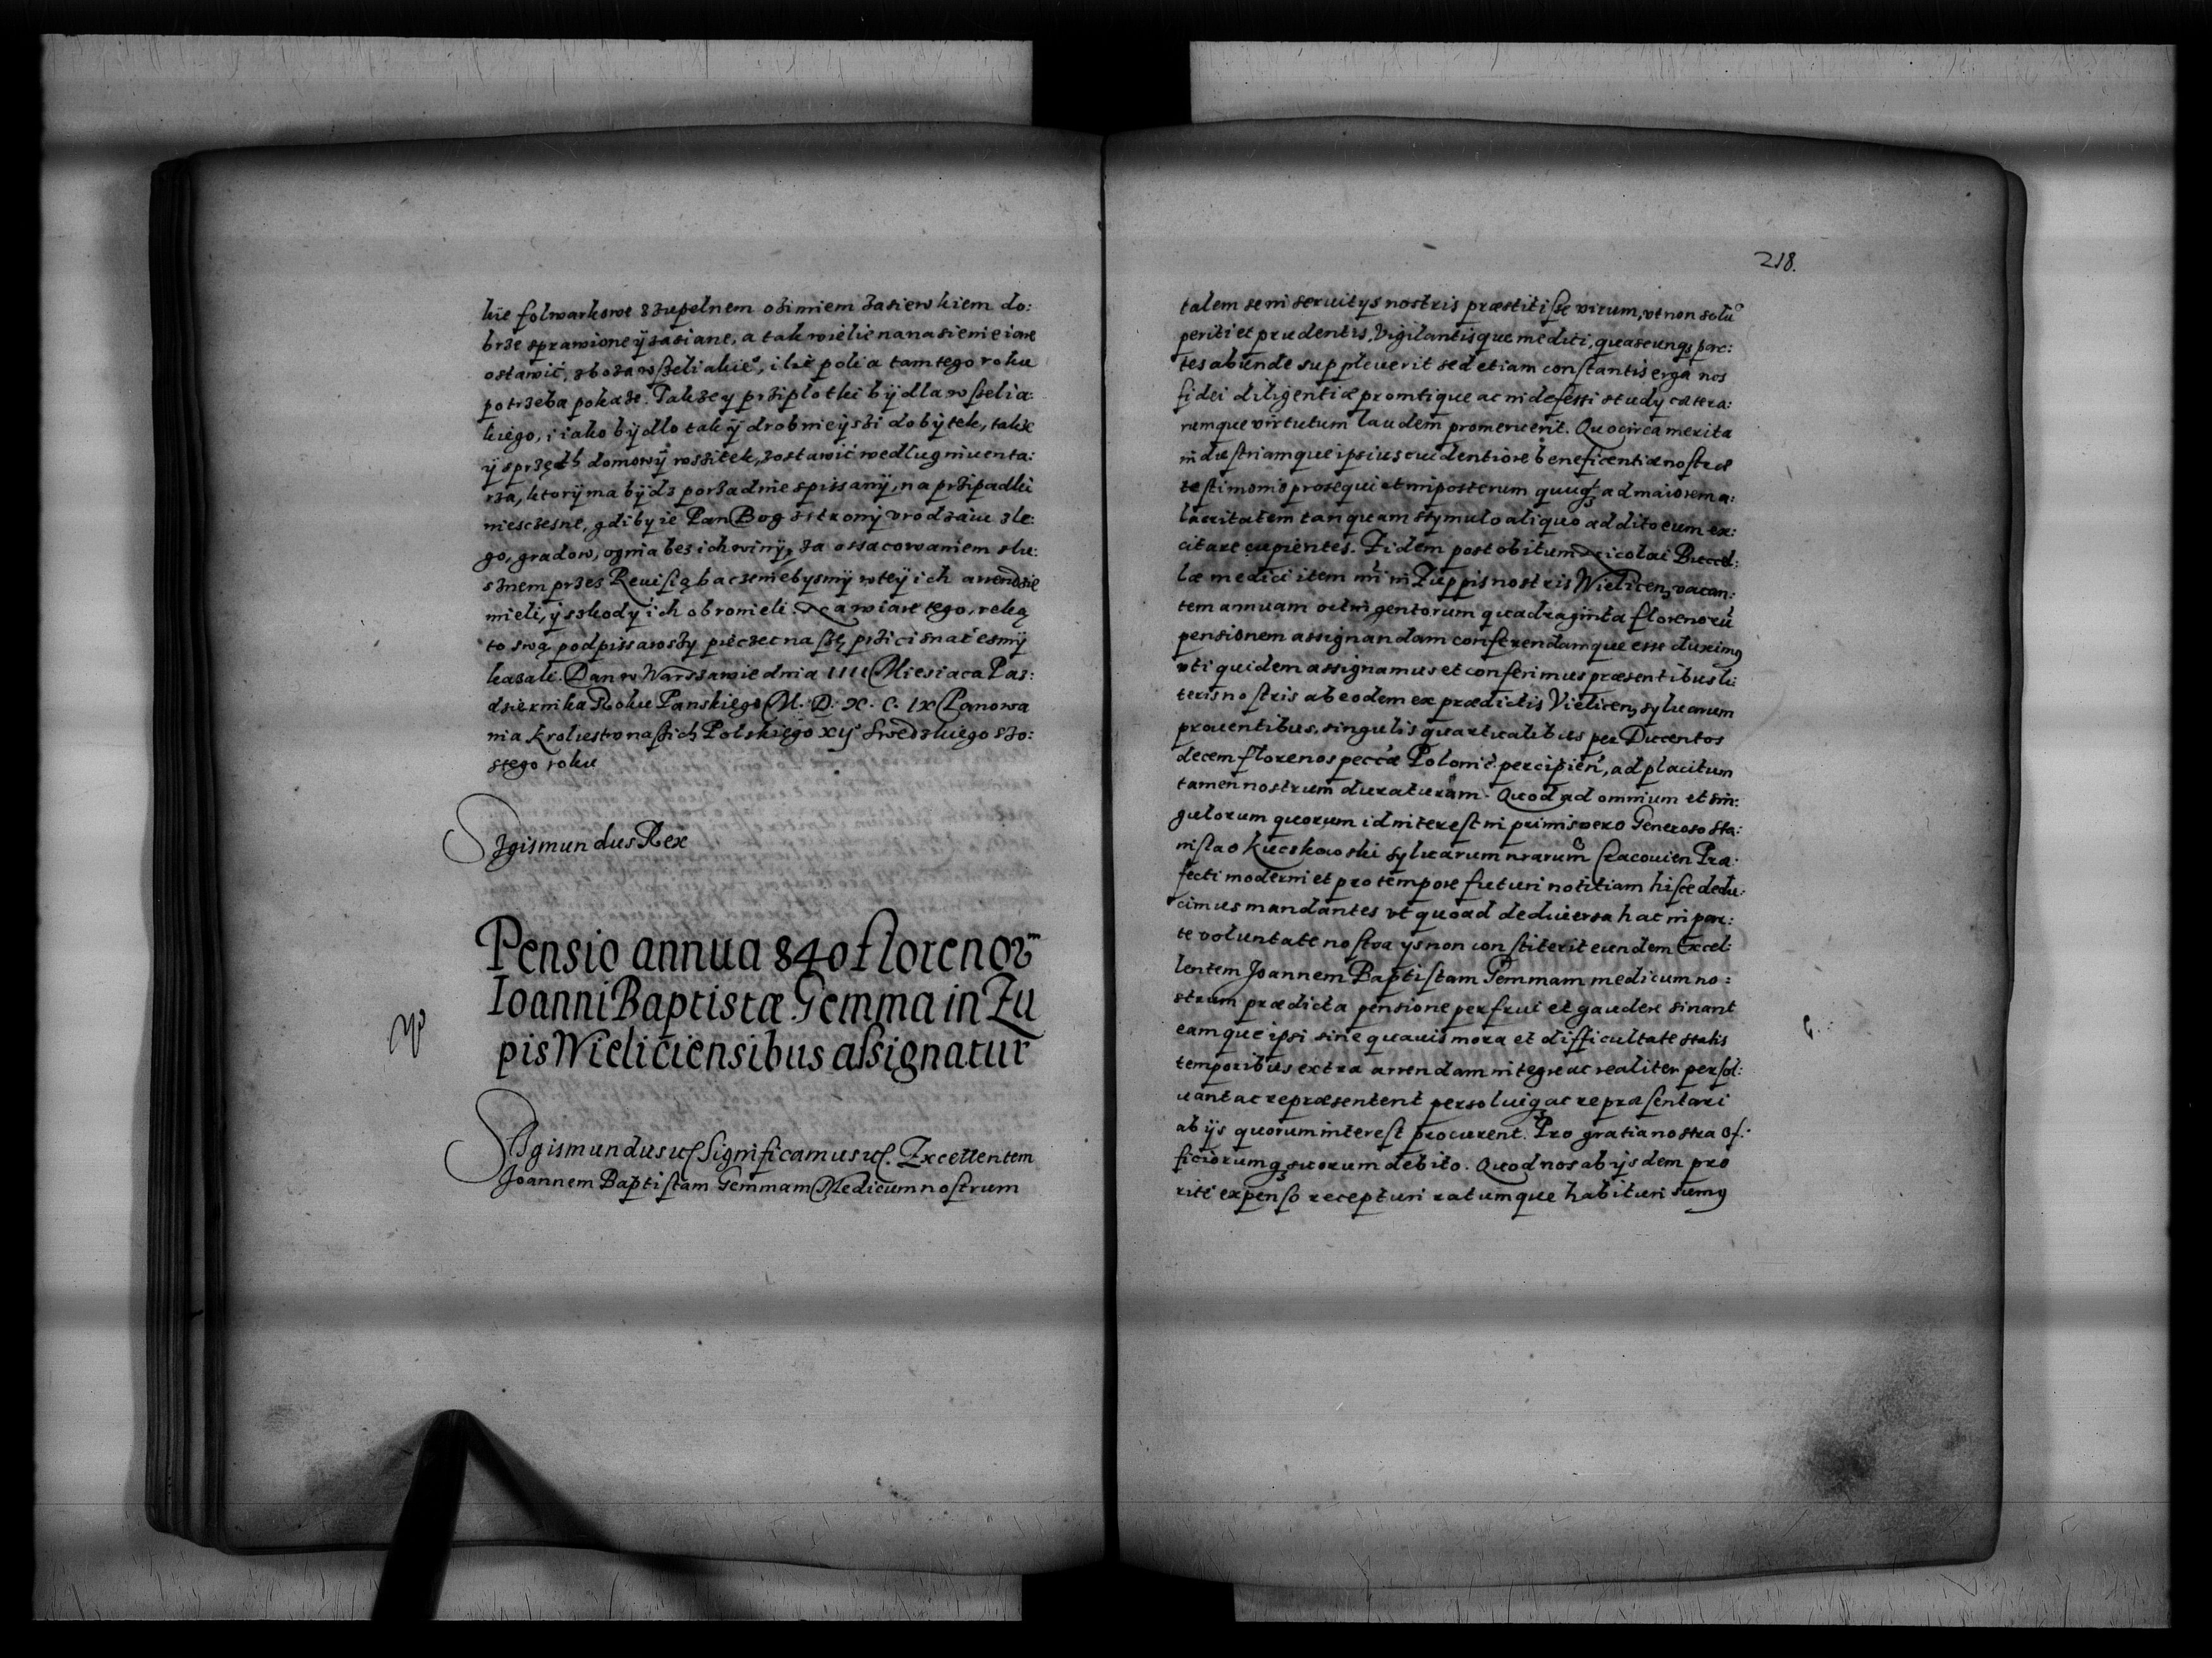 kie folwarkowe szupelnem ozimiem zasiewkiem do:
brze sprawione ÿ zasiane, a tak wiele na nasienie iare
ostawić, zboza wszeliakie°, ile polia tamtego roku
potrzeba pokaze. Takze y prziplotki bÿdla wszelia:
kiego, i iako bÿdlo tak ÿ drobnieÿszi dobÿtek, takze
ÿ sprzęth domowÿ wssitek, zostawić wedlug inuenta:
rza, ktorÿ ma bÿdz porządnie spissanÿ, na prźipadki
niesczesne, gdiby ie Pan Bog z stronÿ vrodzaiu zle:
go, gradow, ognia bez ich winÿ, za ossacowaniem slu:
sznem przes Reuisią baczenie bysmÿ w teÿ ich arendzie
mieli, ÿ szkody ich obronieli. Na wiare tego, reką
to swą podpissawszy pieczec naszę prźicisnać esmÿ
kazali. Dan w Warszawie dnia IIII Miesiaca Paz:
dziernika Roku Panskiego M. D. X. C. IX Panowa
nia krolestw naszich Polskiego xij Swedzkiego szo:
stego roku
Sigismundus Rex
Pensio annua 840 florenorum
Ioanni Baptistæ Gemma in Zu
pis Wieliciensibus assignatur
Sigismundus etc Significamus etc. Excellentem
Joannem Baptistam Gemmam Medicum nostrum
218.
talem se in seruitys nostris præstitisse virum, vt non solū
periti et prudentis, Vigilantisque medici, quascunq; par:
tes abunde suppleuerit sed etiam constantis erga nos
fidei diligentiæ promtique ac indefessi study cætera:
rumque virtutum laudem promeruerit. Quocirca merita
industriamque ipsius euidentiore beneficentiæ nostræ
testimonio prosequi et in posterum quuq; ad maiorem a:
lacritatem tanquam stymulo aliquo addito eum ex:
citare cupientes. Eidem post obitum Nicolai Buccel:
læ medici item nri in Zuppis nostris Wielicen; vacan:
tem annuam octingentorum quadraginta florenorū
pensionem assignandam conferendamque esse duxim9
vti quidem assignamus et conferimus præsentibus li:
teris nostris ab eodem ex prædictis Vielicen; syluarum
prouentibus, singulis quartualibus per Ducentos
decem florenos peccæ Polonic. percipien, ad placitum
tamen nostrum duraturam. Quod ad omnium et sin:
gulorum quorum id interest in primis vero Generoso Sta:
nislao Kuczkowski syluarum nrarum Cracouien Præ:
fecti moderni et pro tempore futuri notitiam hisce dedu:
cimus mandantes vt quoad de diuersa hac in par:
te voluntate nostra ys non constiterit eundem Excel:
lentem Joannem Baptistam Gemmam medicum no:
strum prædicta pensione perfrui et gaudere sinant
eamque ipsi sine quauis mora et difficultate statis
temporibus extra arrendam integre ac realiter persol:
uant ac repræsentent persoluiq; ac repræsentari
ab ijs quorum interest procurent. Pro gratia nostra of:
ficiorumq; suorum debito. Quod nos ab ijsdem pro
rite expenso recepturi ratumque habituri sum9